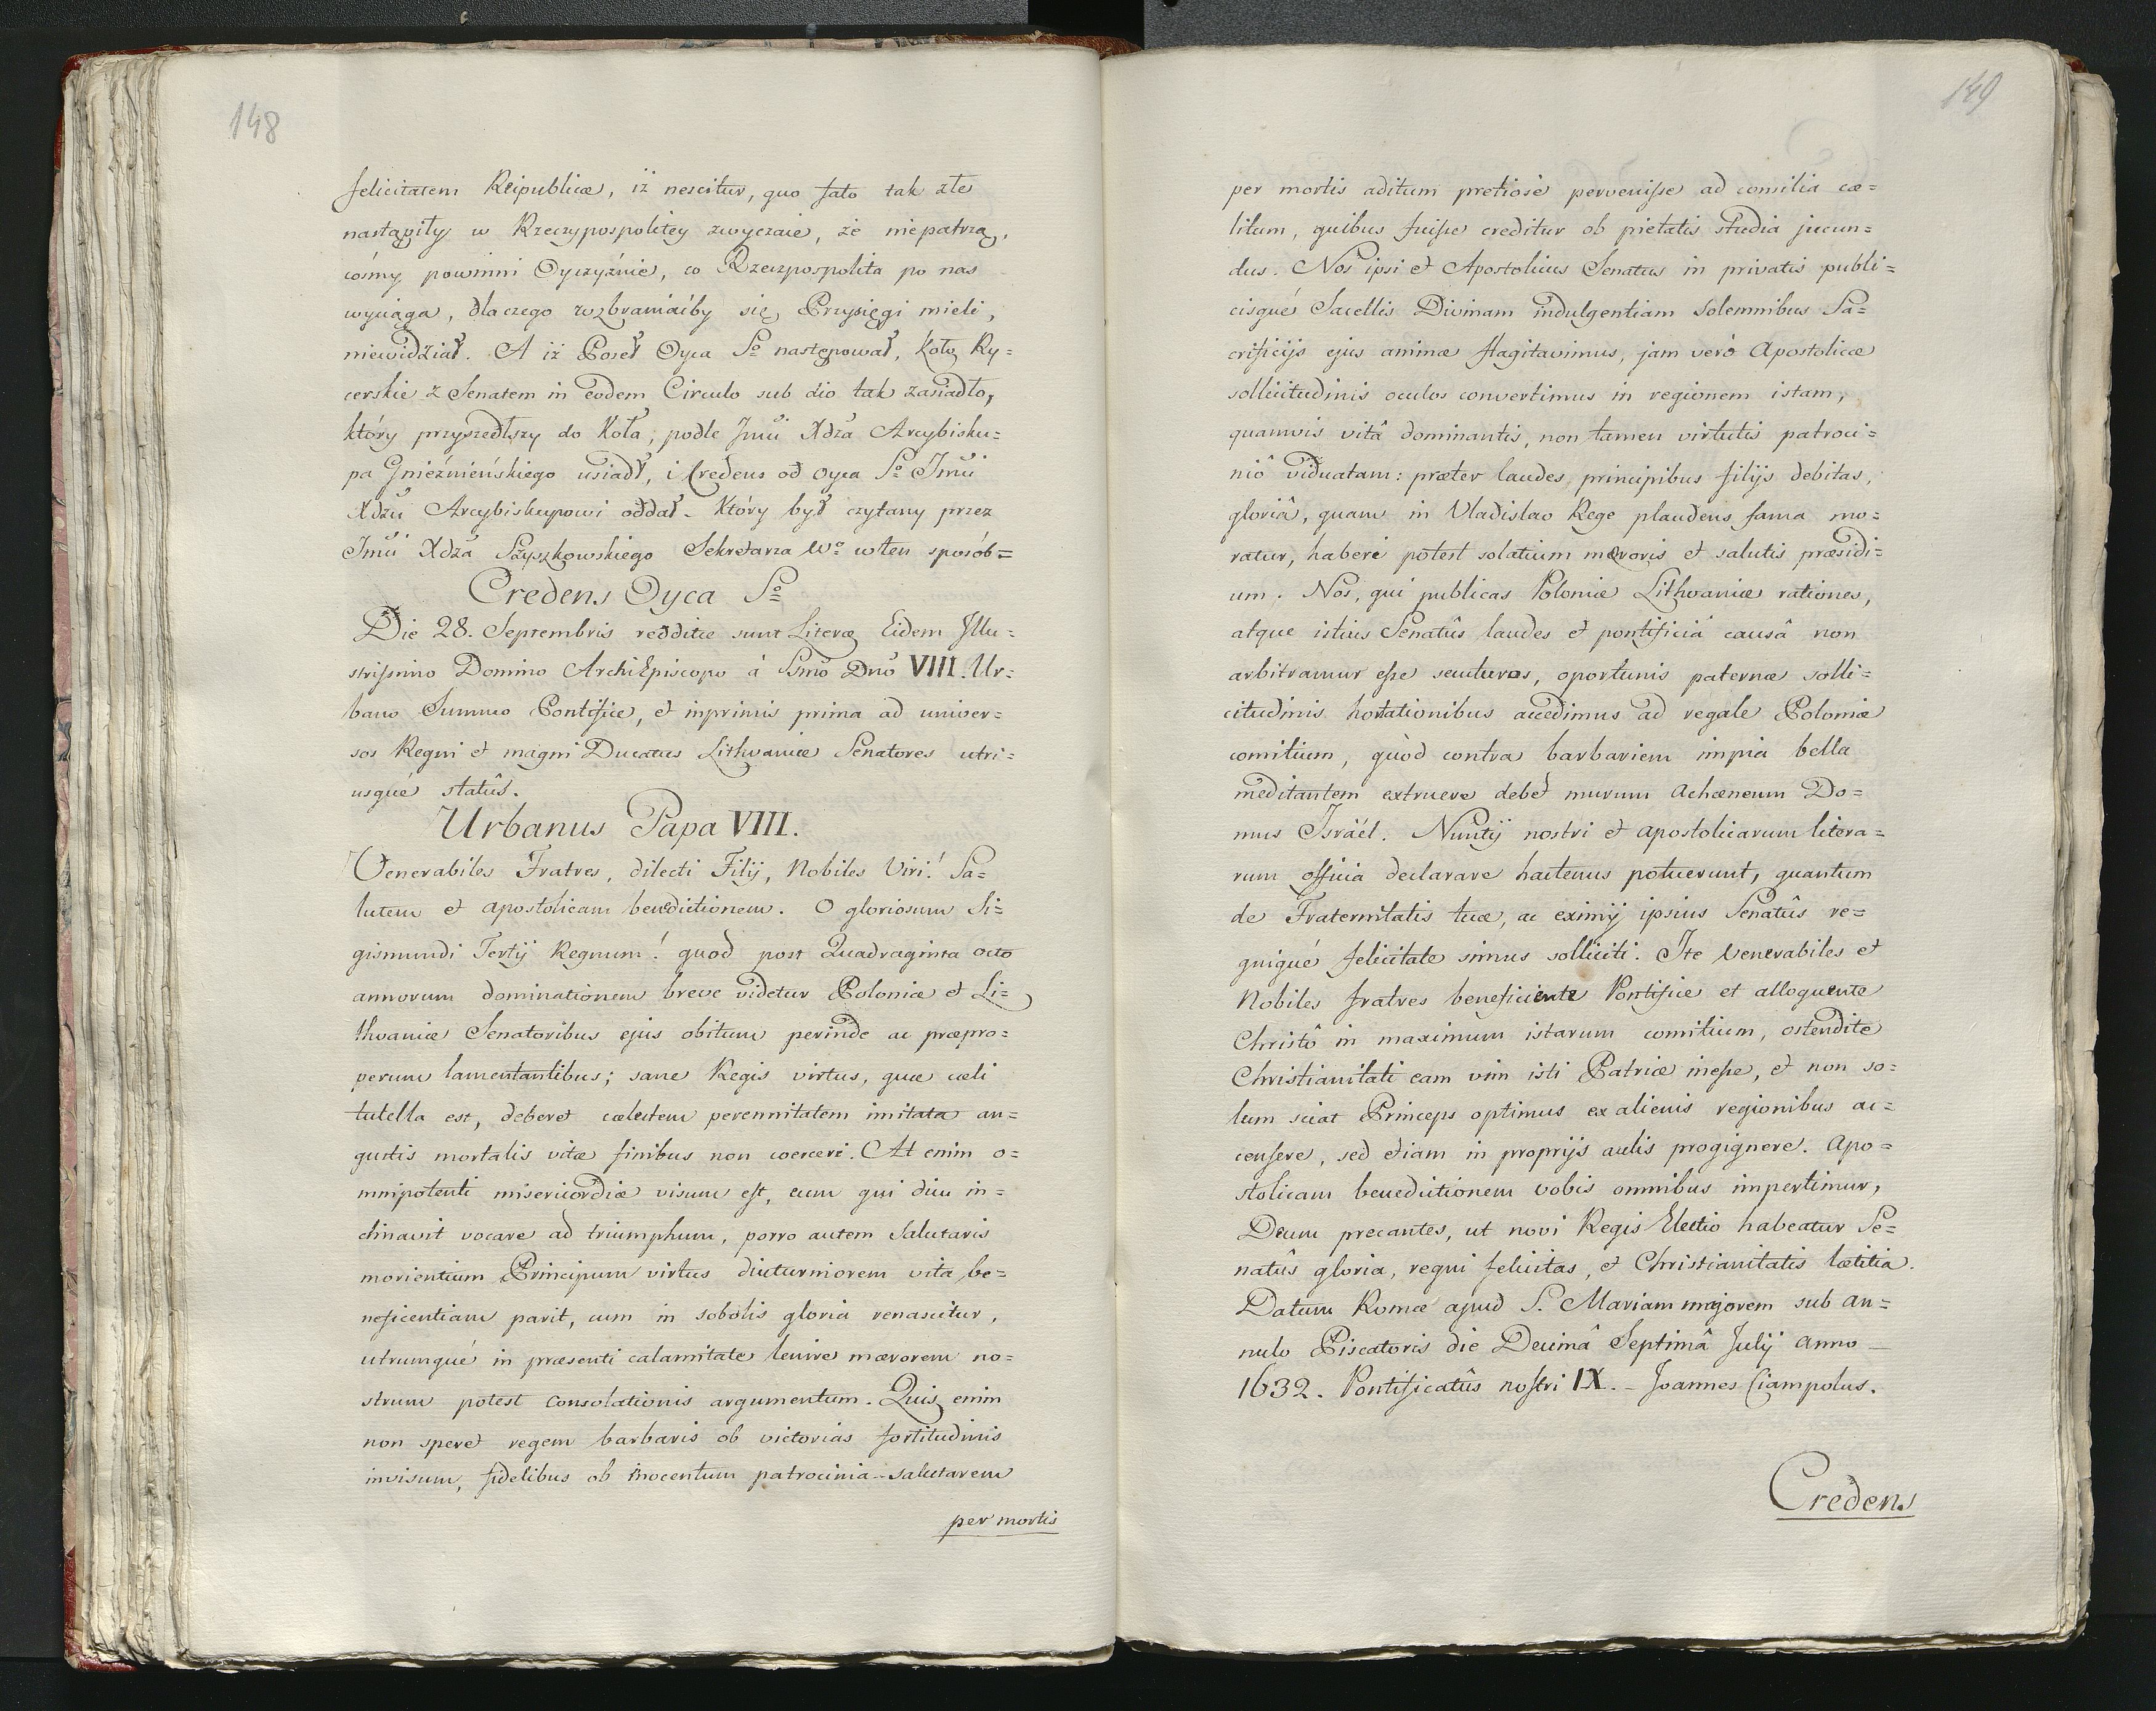 148
felicitatem Reipublicæ, iż nescitur, quo fato tak złe
nastąpiły w Rzeczypospolitey zwyczaie, że niepatrzą,
cośmy powinni Oyczyźnie, co Rzeczpospolita po nas
wyciąga, dlaczego wzbraniaćby się Przysięgi mieli,
niewidział. A iż Poseł Oyca So następował, Koło Ry=
cerskie z Senatem in eodem Circulo sub dio tak zasiadło,
który przyszedłszy do Koła, podle Jmci Xdza Arcybisku=
pa Gnieźnieńskiego usiadł, i Credens od Oyca So Jmci
Xdzu Arcybiskupowi oddał. Który był czytany przez
Jmci Xdza Szyszkowskiego Sekretarza Wo w ten sposób=
Credens Oyca So
Die 28. Septembris redditæ sunt Literæ Eidem Illu=
strissimo Domino ArchiEpiscopo á Ssmõ Dnõ VIII. Ur=
bano Summo Pontifice, et inprimis prima ad univer=
sos Regni et magni Ducatus Lithvaniæ Senatores utri=
usqué statûs.
Urbanus Papa VIII.
Venerabiles Fratres, dilecti Filij, Nobiles Viri! Sa=
lutem et apostolicam benedictionem. O gloriosum Si=
gismundi Tertij Regnum! quod post Quadraginta octo
annorum dominationem breve videtur Poloniæ et Li=
thvaniæ Senatoribus ejus obitum perinde ac præpro=
perum lamentantibus; sane Regis virtus, quæ cæli
tutella est, deberet cælestem perennitatem imitata an=
gustis mortalis vitæ finibus non coerceri. At enim o=
mnipotenti misericordiæ visum est, eum qui diu in=
clinavit vocare ad triumphum, porro autem Salutaris
morientium Principum virtus diuturniorem vita be=
neficentiam parit, cum in sobolis gloria renascitur,
utrumqué in præsenti calamitate lenire mærorem no=
strum potest consolationis argumentum. Quis enim
non speret regem barbaris ob victorias fortitudinis
invisum, fidelibus ob inocentum patrocinia salutarem
per mortis
149
per mortis aditum pretiosè pervenisse ad consilia cæ=
litum, quibus fuisse creditur ob pietatis studia jucun=
dus. Nos ipsi et Apostolicus Senatus in privatis publi=
cisqué Sacellis Divinam indulgentiam solemnibus Sa=
crificijs ejus animæ flagitavimus, jam verò Apostolicæ
sollicitudinis oculos convertimus in regionem istam,
quamvis vitâ dominantis, non tamen virtutis patroci=
niô viduatam: præter laudes principibus filijs debitas,
gloriâ, quam in Vladislao Rege plaudens fama mo=
ratur, haberi potest solatium mæroris et salutis præsidi=
um. Nos, qui publicas Poloniæ Lithvaniæ rationes,
atque istius Senatûs laudes et pontificiâ causâ non
arbitramur esse secuturos, oportunis paternæ solli=
citudinis hortationibus accedimus ad regale Poloniæ
comitium, quòd contra barbariem impia bella
meditantem extruere debet murum achæneum Do=
mus Israël. Nuntij nostri et apostolicarum litera=
rum officia declarare hactenus potuerunt, quantum
de Fraternitatis tuæ, ac eximij ipsius Senatûs re=
gniqué felicitate simus solliciti. Ite Venerabiles et
Nobiles fratres beneficiente Pontifice et alloquente
Christô in maximum istarum comitium, ostendite
Christianitati eam vim isti Patriæ inesse, et non so=
lum sciat Princeps optimus ex alienis regionibus ac=
censere, sed etiam in proprijs aulis progignere. Apo=
stolicam benedictionem vobis omnibus impertimur,
Deum precantes, ut novi Regis Electio habeatur Se=
natûs gloria, regni felicitas, et Christianitatis lætitia.
Datum Romæ apud S. Mariam majorem sub an=
nulo Piscatoris die Decimâ Septimâ Julij anno
1632. Pontificatûs nostri IX. – Joannes Ciampolus.
Credens